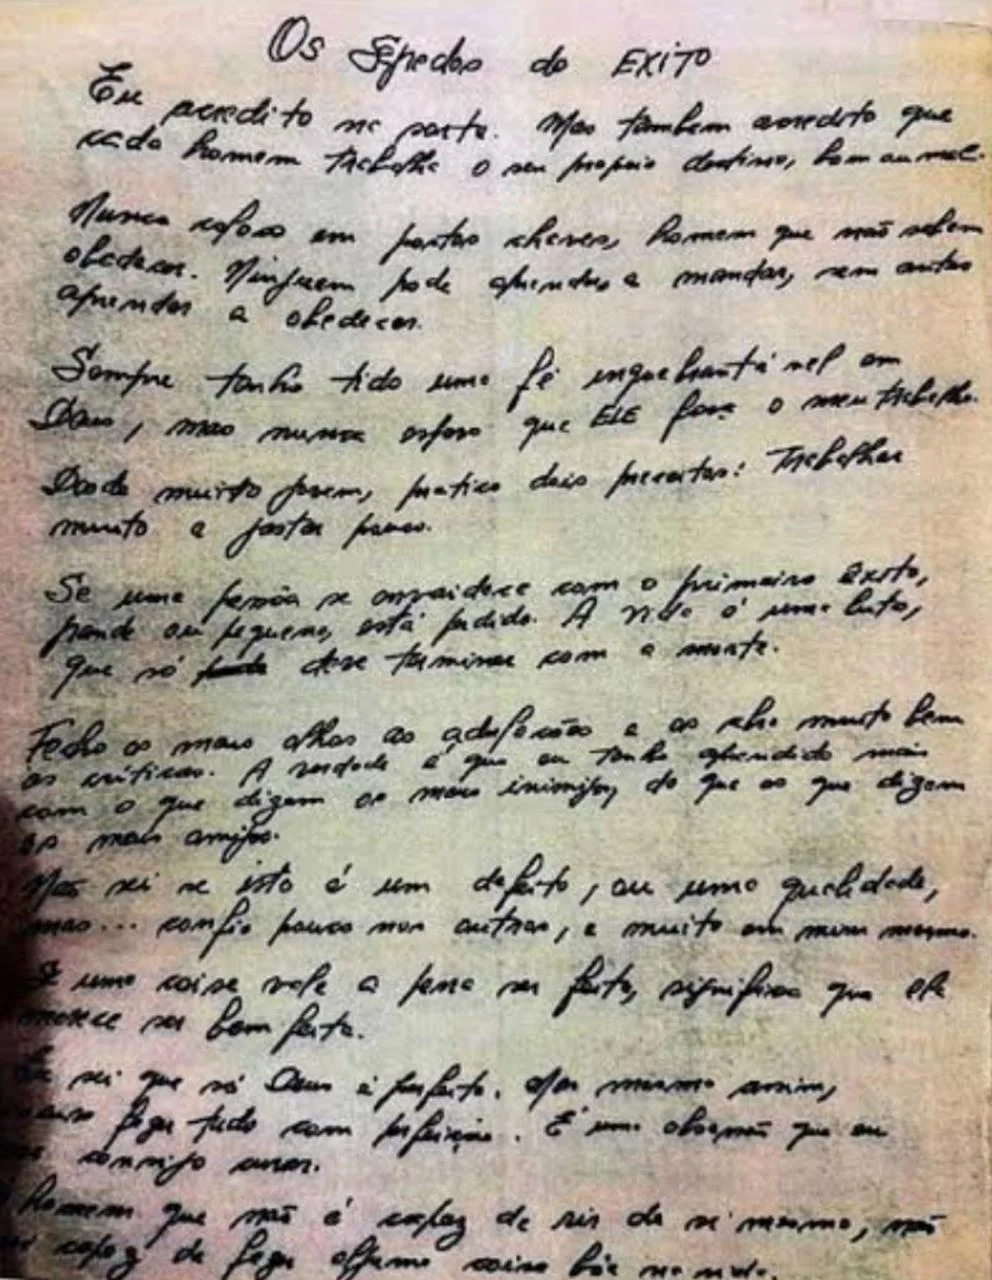 Os Segredos do EXITO
Eu acredito na sorte. Mas tambem acredito que
cada homem trabalha o seu proprio destino, bom ou mal.
Nunca coloco em postos chaves, homem que não sabem
obedecer. Ninguem pode aprender a mandar, sem antes
aprender a obedecer.
Sempre tenho tido uma fé inquebrantável em
Deus, mas nunca espero que ELE faça o meu trabalho.
Desde muito jovem, pratico dois preceitos: Trabalhar
muito e gastar pouco.
Se uma pessoa se envaidece com o primeiro exito,
grande ou pequeno, está perdido. A vida é uma luta,
que só deve terminar com a morte.
Fecho os meus olhos as adulações e os abro muito bem
as criticas. A verdade é que eu tenho aprendido mais
com o que dizem os meus inimigos, do que ao que dizem
os meus amigos.
Não sei se isto é um defeito, ou uma qualidade,
mas... confio pouco nos outros, e muito em mim mesmo.
Se uma coisa vale a pena ser feita, significa que ela
merece ser bem feita.
Eu sei que só Deus é perfeito. Mas mesmo assim,
faça tudo com perfeição. É uma obsessão que eu
consigo curar.
homem que não é capaz de rir de si mesmo, não
capaz de fazer alguma coisa bôa na vida.